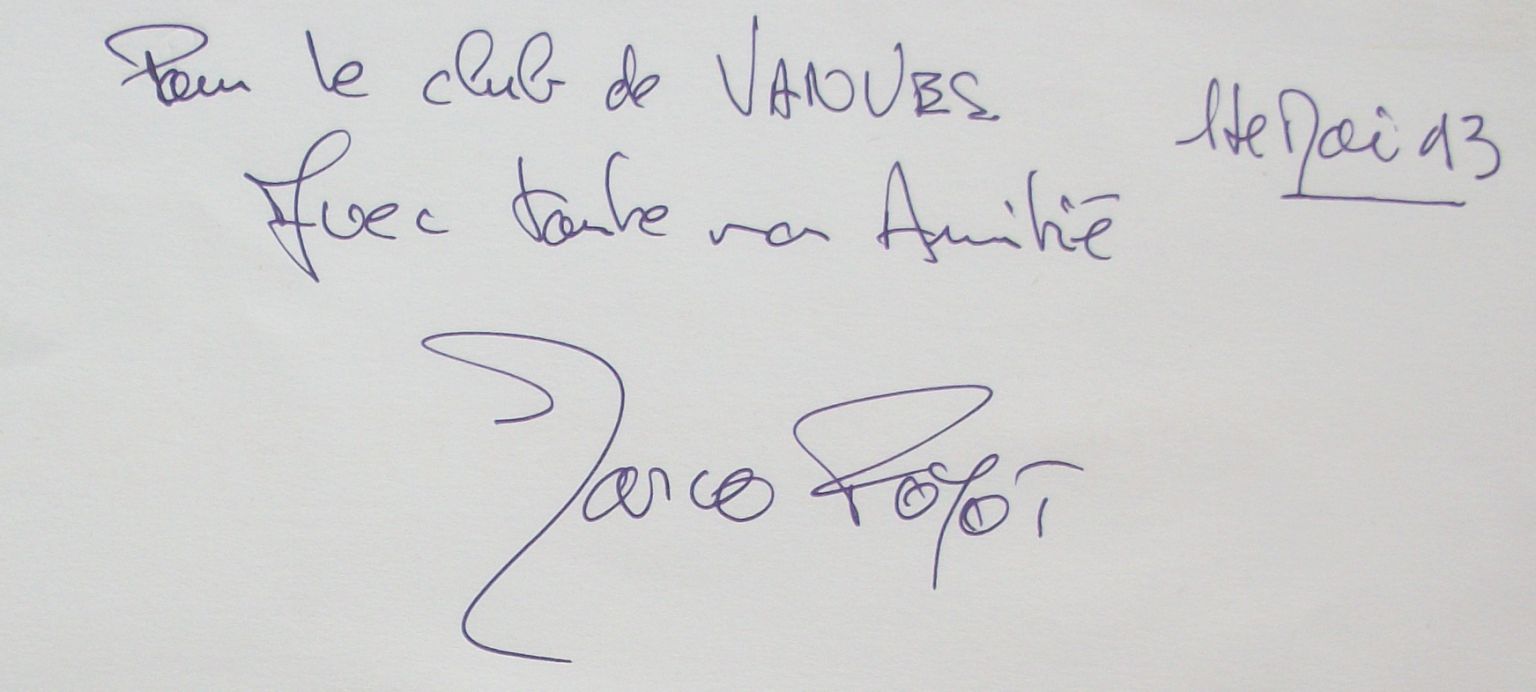 Pour le club de VANVES
Avec toute mon Amitié
Mai 13
Marco